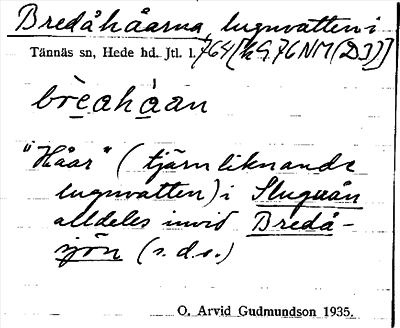 Bredåhåarna, lugnvatten i
Tännäs sn, Hede hd. Jtl. l. 764 [kG 76 NM (D3)]
brèahåan
"Håar" (tjärnliknande
lugnvatten) i Sluguån
alldeles invid Bredå-
sjön (s.d.o.)
O. Arvid Gudmundson 1935.